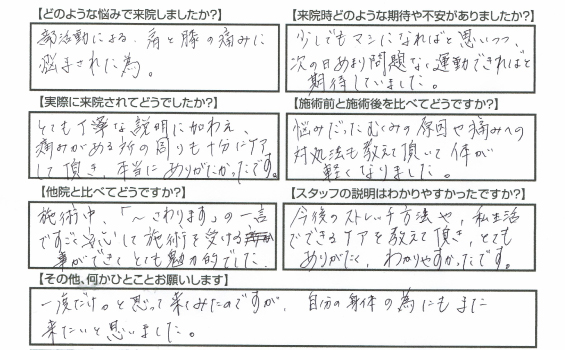 【どのような悩みで来院しましたか?】
部活動による、肩と膝の痛みに
悩まされた為。
【来院時どのような期待や不安がありましたか?】
少しでもマシになればと思いつつ、
次の日あまり問題なく運動できればと
期待していました。
【実際に来院されてどうでしたか?】
とても丁寧な説明に加わえ、
痛みがある所の周りも十分にケア
して頂き、本当にありがたかったです。
【施術前と施術後を比べてどうですか?】
悩みだったむくみの原因や痛みへの
対処法も教えて頂いて体が
軽くなりました。
【他院と比べてどうですか?】
施術中、「〜さわります」の一言
ですごく安心して施術を受ける
事ができてとても魅力的でした。
【スタッフの説明はわかりやすかったですか?】
今後のストレッチ方法や、私生活
でできるケアを教えて頂き、とても
ありがたく、わかりやすかったです。
【その他、何かひとことお願いします】
一度だけ。と思って来てみたのですが、自分の身体の為にもまた
来たいと思いました。